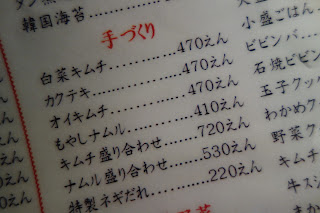 韓国海苔
手づくり
白菜キムチ............470えん
カクテキ............470えん
オイキムチ............470えん
もやしナムル............410えん
キムチ盛り合わせ............720えん
ナムル盛り合わせ............530えん
特製ネギだれ............220えん
小盛ごはん
ビビンバ
石焼ビビン
玉子クッ
わかめク
野菜ク
キムチ
牛ス